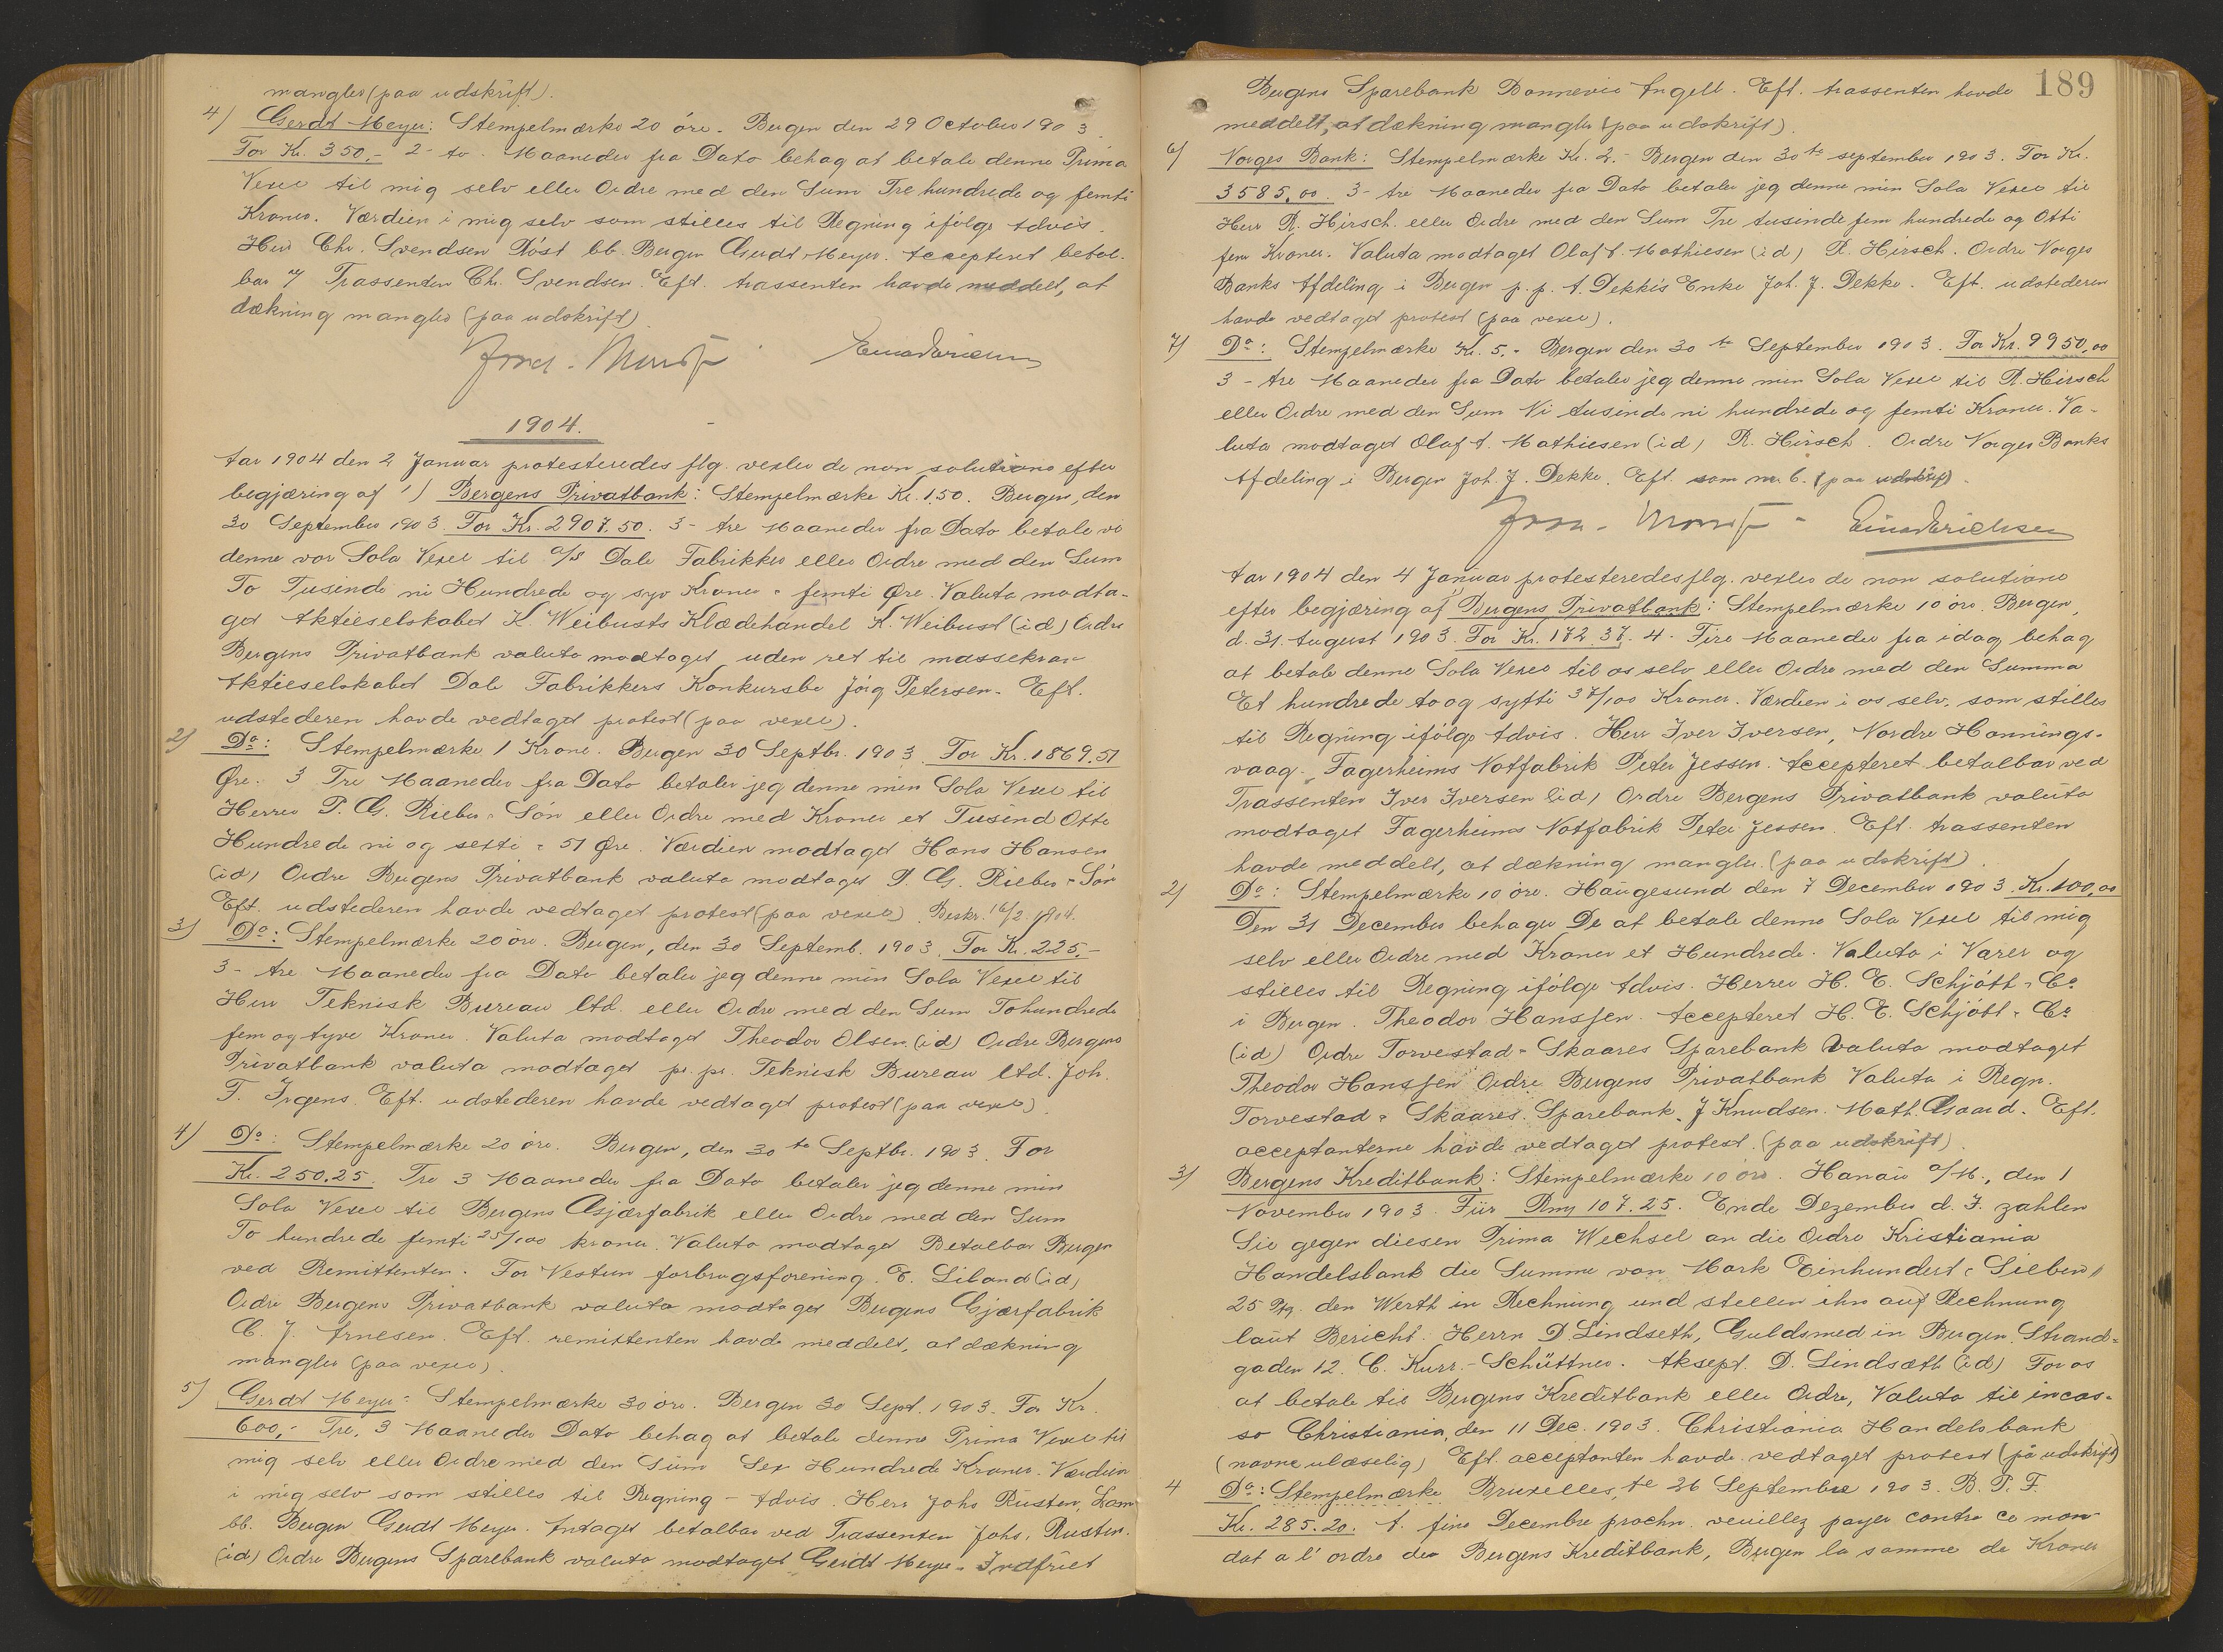 mangler (paa udskrift).
4) Gerdt Meyer: Stempelmærke 20 öre. Bergen den 29 October 1903.
For Kr. 350,- 2- to. Maaneder fra Dato behag at betale denne Prima
Vexel til mig selv eller Ordre med den Sum Tre hundrede og femti
Kroner. Værdien i mig selv som stilles til Regning ifölge Advis.
Herr Chr. Svendsen Röst bb. Bergen Gerdt Meyer. Accepteret betal-
bar Trassenten Chr. Svendsen. Eft. trassenten havde meddelt, at
dækning mangler (paa udskrift).
1904.
Aar 1904 den 2 Januar protesteredes flg. vexler de non solutione efter
begjæring af 1) Bergens Privatbank: Stempelmærke Kr. 1.50. Bergen, den
30 September 1903. For Kr. 2907.50. 3- tre Maaneder fra Dato betale vi
denne vor Sola Vexel til a/s Dale Fabrikker eller Ordre med den Sum
To Tusinde ni Hundrede og syv Kroner = femti Öre. Valuta modta-
get Aktieselskabet K. Weibusts Klædehandel K. Weibust (id) Ordre
Bergens Privatbank valuta modtaget uden ret til massekrav
Aktieselskabet Dale Fabrikkers Konkursbo Jörg Petersen. Eft.
udstederen havde vedtaget protest (paa vexel).
2) Do: Stempelmærke 1 Krone. Bergen 30 Septbr. 1903. For Kr. 1869.51
Öre. 3 Tre Maaneder fra Dato betaler jeg denne min Sola Vexel til
Herrer P. G. Rieber = Sön eller Ordre med Kroner et Tusind Otte
Hundrede ni og sexti = 51 Öre. Værdien modtaget Hans Hansen
(id) Ordre Bergens Privatbank valuta modtaget P. G. Rieber = Sön
Eft. udstederen havde vedtaget protest (paa vexel). Beskr. 16/2 1904.
3) Do: Stempelmærke 20 öre. Bergen, den 30 Septemb. 1903. For Kr. 225,-
3- tre Maaneder fra Dato betaler jeg denne min Sola Vexel til
Herr Teknisk Bureau Ltd. eller Ordre med den Sum Tohundrede
fem og tyve Kroner. Valuta modtaget Theodor Olsen (id) Ordre Bergens
Privatbank valuta modtaget pr. pr. Teknisk Bureau Ltd. Joh.
F. Irgens. Eft. udstederen havde vedtaget protest (paa vexel).
4) Do: Stempelmærke 20 öre. Bergen, den 30 te Septbr. 1903. For
Kr. 250.25. Tre 3 Maaneder fra Dato betaler jeg denne min
Sola Vexel til Bergens Gjærfabrik eller Ordre med den Sum
To hundrede femti 25/100 kroner. Valuta modtaget Betalbar Bergen
ved Remittenten. For Vestun forbrugsforening. E. Liland (id)
Ordre Bergens Privatbank valuta modtaget Bergens Gjærfabrik
C. J. Arnesen. Eft. remittenten havde meddelt, at dækning
mangler (paa vexel).
5) Gerdt Meyer: Stempelmærke 30 öre. Bergen 30 Sept. 1903. For Kr.
600,- Tre, 3 Maaneder Dato behag at betale denne Prima Vexel til
mig selv eller Ordre med den Sum Sex Hundrede Kroner. Værdien
i mig selv som stilles til Regning - Advis. Herr Johs Rusten, Lam
bb. Bergen Gerdt Meyer. Antaget betalbar ved Trassenten Johs. Rusten.
(id) Ordre Bergens Sparebank valuta modtaget Gerdt Meyer. Indfriet
189
Bergens Sparebank Dannevig Angell. Eft. trassenten havde
meddelt, at dækning mangler (paa udskrift).
6) Norges Bank: Stempelmærke Kr. 2.- Bergen den 30te september 1903. For Kr.
3585.00. 3- tre Maaneder fra Dato betaler jeg denne min Sola Vexel til
Herr R. Hirsch. eller Ordre med den Sum Tre tusinde fem hundrede og Otti
fem Kroner. Valuta modtaget Olaf A. Mathiesen (id) R. Hirsch. Ordre Norges
Banks Afdeling i Bergen p. p. A. Dekkis Enke Joh. J. Dekke. Eft. udstederen
havde vedtaget protest (paa vexel).
7) Do: Stempelmærke Kr. 5.- Bergen den 30 te September 1903. For Kr. 9950,00
3- tre Maaneder fra Dato betaler jeg denne min Sola Vexel til R. Hirsch
eller Ordre med den Sum Ni tusinde ni hundrede og femti Kroner. Va-
luta modtaget Olaf A. Mathiesen (id) R. Hirsch. Ordre Norges Banks
Afdeling i Bergen Joh. J. Dekke. Eft. som nr. 6. (paa udskrift).
Einar Erichsen
Aar 1904 den 4 Januar protesteredes flg. vexler de non solutione
efter begjæring af 1) Bergens Privatbank: Stempelmærke 10 öre. Bergen,
d. 31. August 1903. For Kr. 172.37. 4- Fire Maaneder fra idag behag
at betale denne Sola Vexel til os selv eller Ordre med den Summa
Et hundrede to og sytti 37/100 Kroner. Værdien i os selv, som stilles
til Regning ifölge Advis. Herr Iver Iversen, Nordre Honnings-
vaag. Fagerheims Notfabrik Peter Jessen. Accepteret betalbar ved
Trassenten Iver Iversen (id) Ordre Bergens Privatbank valuta
modtaget Fagerheims Notfabrik Peter Jessen. Eft. trassenten
havde meddelt, at dækning mangler. (paa udskrift).
2) Do: Stempelmærke 10 öre. Haugesund den 7 December 1903. Kr. 100,00
Den 31 December behager De at betale denne Sola Vexel til mig
selv eller Ordre med Kroner et Hundrede. Valuta i Varer og
stilles til Regning ifölge Advis. Herrer H. E. Schjött = Co
i Bergen. Theodor Hanssen. Accepteret H. E. Schjött = Co
(id) Ordre Torvestad = Skaares Sparebank Valuta modtaget
Theodor Hanssen Ordre Bergens Privatbank Valuta i Regn.
Torvestad = Skaares Sparebank. J Knudsen. Math. Gaard. Eft.
acceptanterne havde vedtaget protest. (paa udskrift).
3) Bergens Kreditbank: Stempelmærke 10 öre. Hanau a/M., den 1
November 1903. Für Rm 107.25. Ende Dezember d. J. zahlen
Sie gegen diesen Prima Wechsel an die Ordre Kristiania
Handelsbank die Summe von Mark Einhundert = Sieben
25 Pfg. den Werth in Rechnung und stellen ihn auf Rechnung
laut Bericht. Herrn D Lindseth, Guldsmed in Bergen. Strand-
gaden 12. C. Kurr.-Schüttner. Aksept. D. Lindsæth (id) For os
at betale til Bergens Kreditbank eller Ordre, Valuta til incas-
so Christiania, den 11 Dec. 1903. Christiania Handelsbank
(navne ulæselig) Eft. acceptanten havde vedtaget protest (på udskrift)
4 Do: Stempelmærke Bruxelles, le 26 Septembre 1903. B. P. F.
Kr. 285.20. A. fine Decembre prochn. veuillez payer contre ce man-
dat a l'ordre des Bergens Kreditbank, Bergen la somme de Kroner